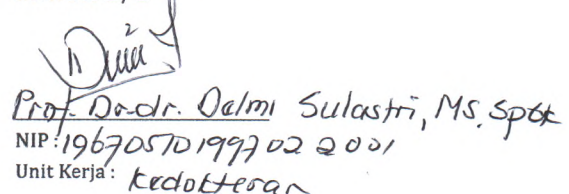 Prof. Dr. dr. Delmi Sulastri, MS, SpGK
NIP : 19670510 199702 2 001
Unit Kerja : Kedokteran